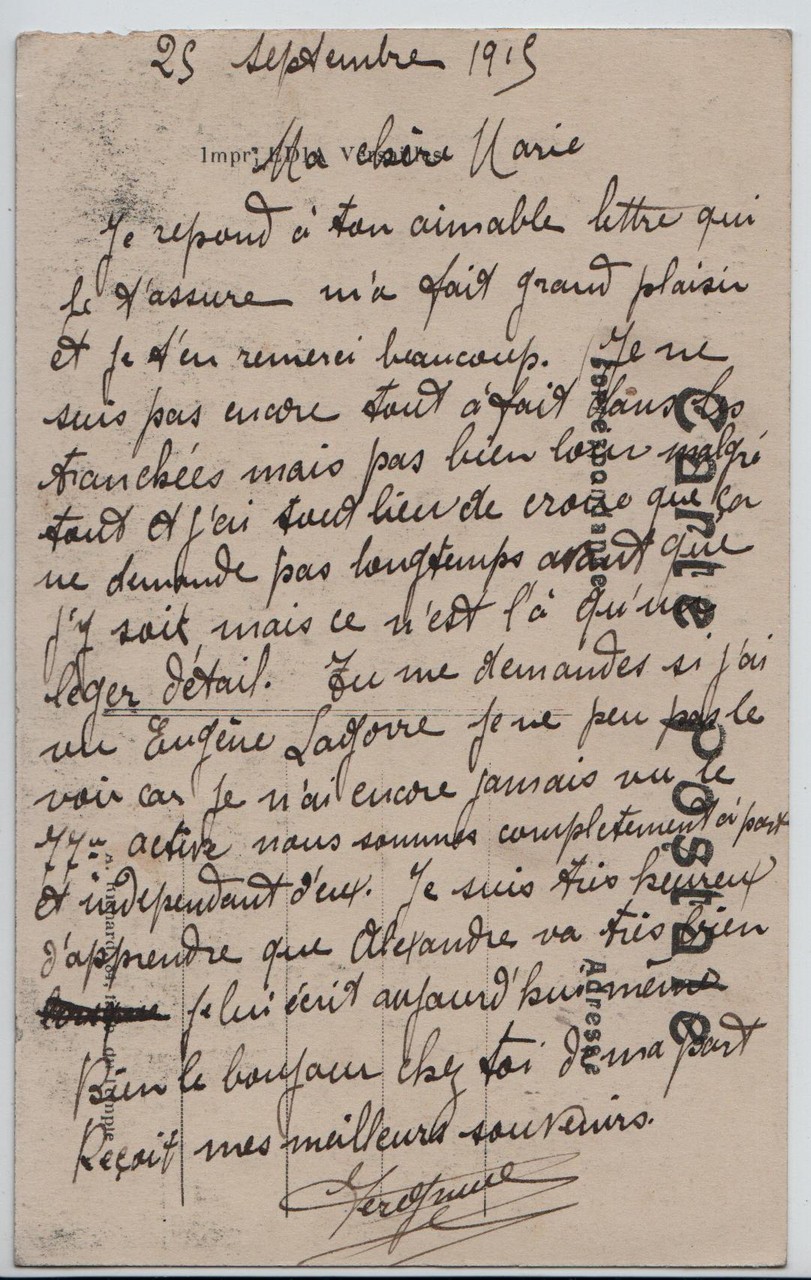 25 septembre 1915
Ma chère Marie
Je repond à ton aimable lettre qui
je t'assure m'a fait grand plaisir
et je t'en remerci beaucoup. Je ne
suis pas encore tout à fait dans les
tranchées mais pas bien loin malgré
tout et j'ai tout lieu de croire que ça
ne demande pas longtemps avant que
j'y soit mais ce n'est l'à qu'un
léger détail. Tu me demandes si j'ai
vu Eugène je ne peu pas le
voir car je n'ai encore jamais vu le
77e active nous sommes completement à part
et independant d'eux. Je suis très heureux
d'apprendre que Alexandre va très bien
je lui écrit aujourd'hui même
Bien le bonjour chez toi de ma part
Reçoit mes meilleurs souvenirs.
Carte Postale
Correspondance
Adresse